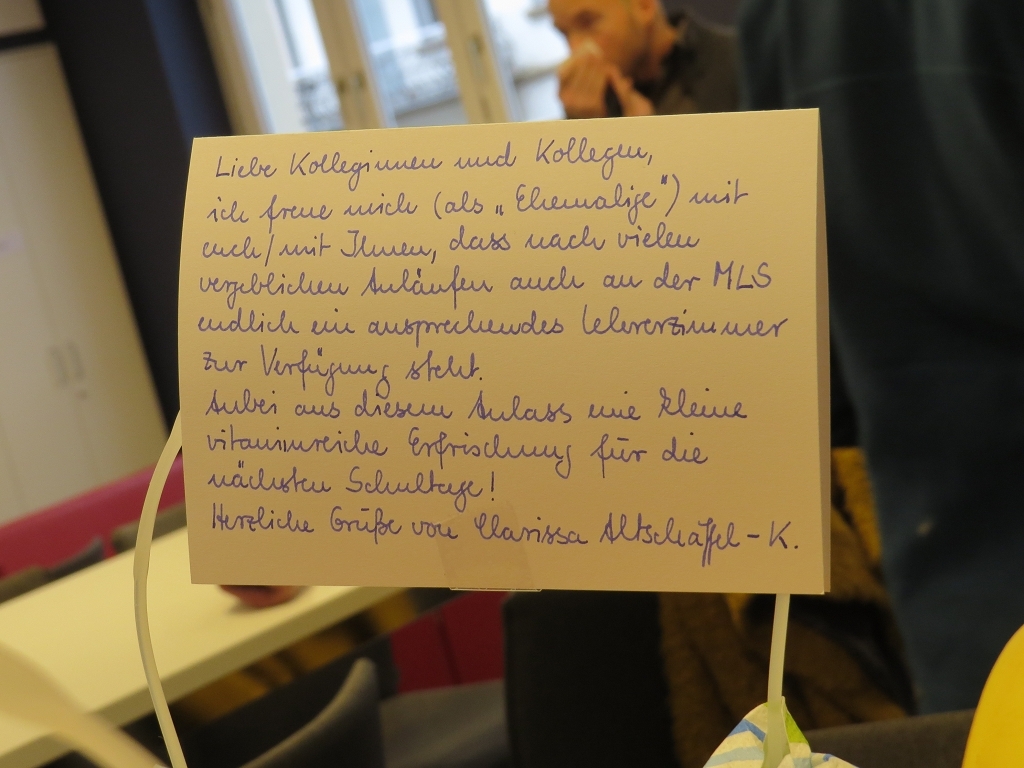 Liebe Kolleginnen und Kollegen,
ich freue mich (als „Ehemalige") mit
euch/mit Ihnen, dass nach vielen
vergeblichen Anläufen auch an der MLS
endlich ein ansprechendes Lehrerzimmer
zur Verfügung steht.
Anbei aus diesem Anlass eine kleine
vitaminreiche Erfrischung für die
nächsten Schultage!
Herzliche Grüße von Clarissa Altschäffel-K.